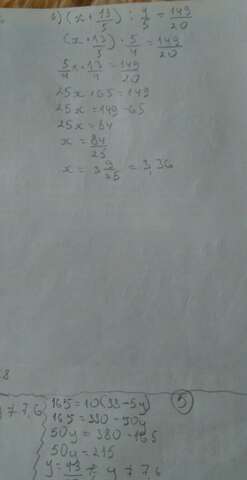 б) (x + 13/5) : 4/5 = 149/20
(x + 13/5) · 5/4 = 149/20
5/4 x + 13/4 = 149/20
25x + 65 = 149
25x = 149 - 65
25x = 84
x = 84/25
x = 3 9/25 = 3,36
≠ 7,6
165 = 10(33 - 5y)
165 = 380 - 50y
50y = 380 - 165
50y = 215
y ≠ 7,6
5